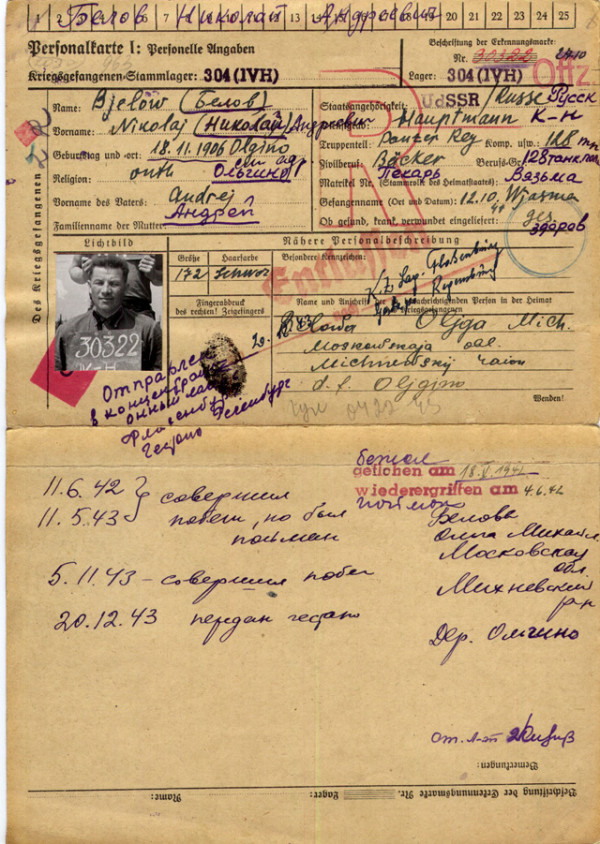 1 2 6 7 13 18 19 20 21 22 23 24 25
Белов Николай Андреевич
Personalkarte I: Personelle Angaben
Kriegsgefangenen-Stammlager: 304 (IVH)
Beschriftung der Erkennungsmarke:
Nr. 30322
Lager: 304 (IVH) Offz.
Des Kriegsgefangenen
Name: Bjelow (Белов)
Vorname: Nikolaj (Николай) Андреевич
Geburtstag und -ort: 18.11.1906 Olgino
Ольгино
Religion: orth
Vorname des Vaters: Andrej
Андрей
Familienname der Mutter:
Staatsangehörigkeit: UdSSR /Russe Русск
Dienstgrad: Hauptmann К-н
Truppenteil: Panzer Reg Komp. usw.: 128
Zivilberuf: Bäcker Berufs-Gr.:
Пекарь
Matrikel Nr. (Stammrolle des Heimatstaates): Вязьма
Gefangenname (Ort und Datum): 12.10. Wjasma
Ob gesund, krank, verwundet eingeliefert: ges.
здоров
Lichtbild
30322
Größe Haarfarbe
172 Schwarz
Fingerabdruck
des rechten! Zeigefingers
Nähere Personalbeschreibung
Besondere Kennzeichen:
Entlassen
K.Z. Lag. Flossenburg
Regensburg
Name und Anschrift der zu benachrichtigenden Person in der Heimat
des Kriegsgefangenen
Olga Mich.
Moskowskaja obl.
Michnewskij raion
d. Olgino
Wenden!
Отправлен
в концентраци
онный лаг.
Гестапо
бежал
geflohen am 18.V.1942
wiederergriffen am 4.6.42
пойман
11.6.42 } совершил
11.5.43 побеги, но был
пойман
5.11.43 - совершил побег
20.12.43 передан гестапо
Белова
Ольга Михайл.
Московская
обл.
Михневский
р-н
Дер. Ольгино
Bemerkungen:
Beschriftung der Erkennungsmarke Nr. Lager: Name: